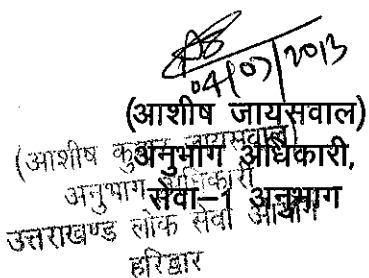 04/07/2013
(आशीष जायसवाल)
अनुभाग अधिकारी,
सेवा-1 अनुभाग
(आशीष कुमार जायसवाल)
अनुभाग अधिकारी
उत्तराखण्ड लोक सेवा आयोग
हरिद्वार